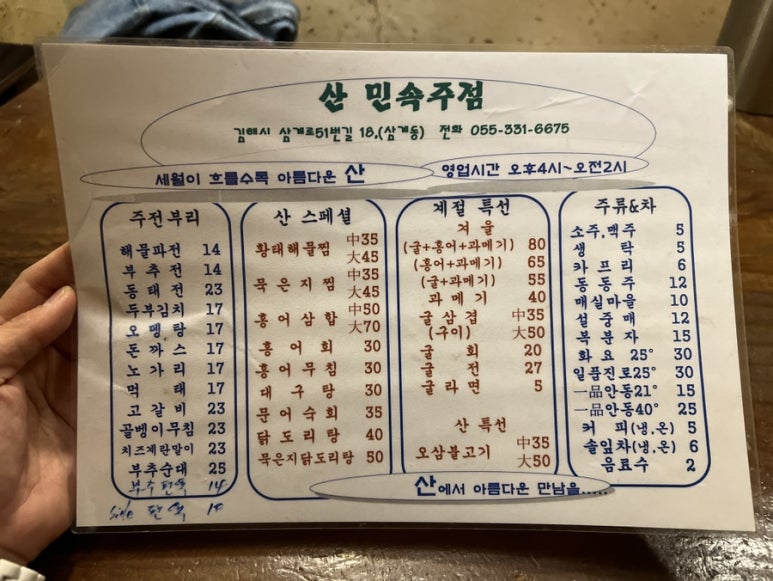 산 민속주점
김해시 삼계로51번길 18,(삼계동) 전화 055-331-6675
세월이 흐를수록 아름다운 산
영업시간 오후4시~오전2시
주전부리
해물파전 14
부추전 14
동태전 23
두부김치 17
오뎅탕 17
돈까스 17
노가리 17
먹태 17
고갈비 23
골벵이무침 23
치즈계란말이 23
부추순대 25
부추편육 14
side 편육 10
산 스페셜
황태해물찜 中35
大45
묵은지찜 中35
大45
홍어삼합 中50
大70
홍어회 30
홍어무침 30
대구탕 30
문어숙회 35
닭도리탕 40
묵은지닭도리탕 50
계절 특선
겨울
(굴+홍어+과메기) 80
(홍어+과메기) 65
(굴+과메기) 55
과메기 40
굴삼겹 中35
(구이) 大50
굴회 20
굴전 27
굴라면 5
산 특선
오삼불고기 中35
大50
주류&차
소주,맥주 5
생탁 5
카프리 6
동동주 12
매실마을 10
설중매 12
복분자 15
화요 25° 30
일품진로25° 30
一品안동21° 15
一品안동40° 25
커피(냉,온) 5
솔잎차(냉,온) 6
음료수 2
산에서 아름다운 만남을.....